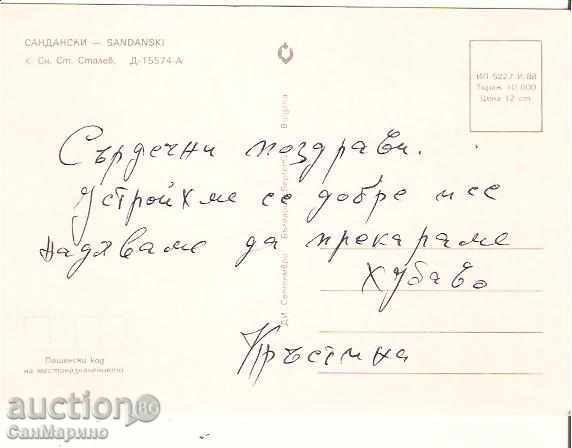 САНДАНСКИ — SANDANSKI
Сн. Ст. Сталев. Д-15574-А
ИП 5227 И. 88
Тираж 10 000
Цена 12 ст
Сърдечни поздрави.
Устройхме се добре и се
надяваме да прекараме
хубаво
Кръстина
ДИ Септември България Bulgaria
Пощенски код
на местоназначението
auction BG
СанМарино